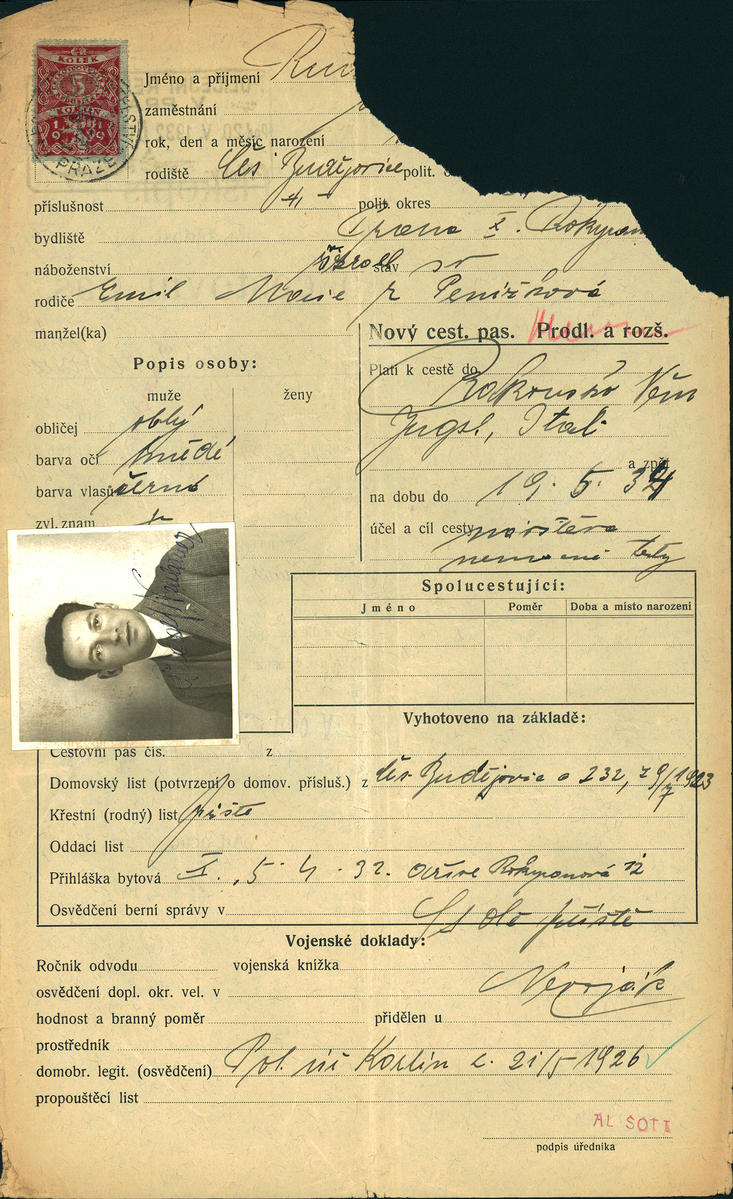 KOLEK
5
KORUN
PRAZE
Jméno a příjmení
zaměstnání
rok, den a měsíc narození
rodiště Čes Budějovice polit. o
příslušnost -"- polit. okres
bydliště Praha X. Rokycan
náboženství stav sv
rodiče Emil Marie r Penížková
manžel(ka)
Nový cest. pas. Prodl. a rozš.
Popis osoby:
muže ženy
obličej oblý
barva očí hnědé
barva vlasů černé
zvl. znam
Platí k cestě do Rakouska Něm
Jugsl, Itali
a zpět
na dobu do 19. 5. 34
účel a cíl cesty návštěva
nemocné tety
Spolucestující:
Jméno Poměr Doba a místo narození
Vyhotoveno na základě:
Cestovní pas čís. z
Domovský list (potvrzení o domov. přísluš.) z čes. Budějovic 232, z 9/7 1923
Křestní (rodný) list příště
Oddací list
Přihláška bytová X. 5. 4. 32. Rokycanová 12
Osvědčení berní správy v
příště
Vojenské doklady:
Ročník odvodu vojenská knížka
osvědčení dopl. okr. vel. v
hodnost a branný poměr přidělen u
prostředník
domobr. legit. (osvědčení) Pol. úř Karlín z. 21/5 1926
propouštěcí list
podpis úředníka